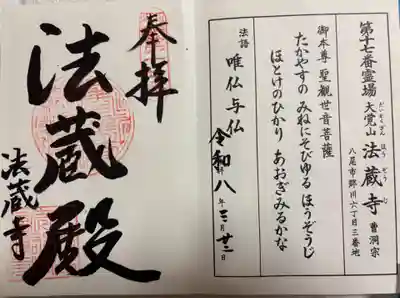 第十七番霊場
大覚山 法蔵寺 曹洞宗
だいかくざん ほうぞうじ
八尾市郡川六丁目三番地
御本尊 聖観世音菩薩
たかやすの みねにそびゆる ほうぞうじ
ほとけのひかり あおぎみるかな
法語
唯仏与仏
令和八年三月廿二日
奉拝
法蔵殿
法蔵寺